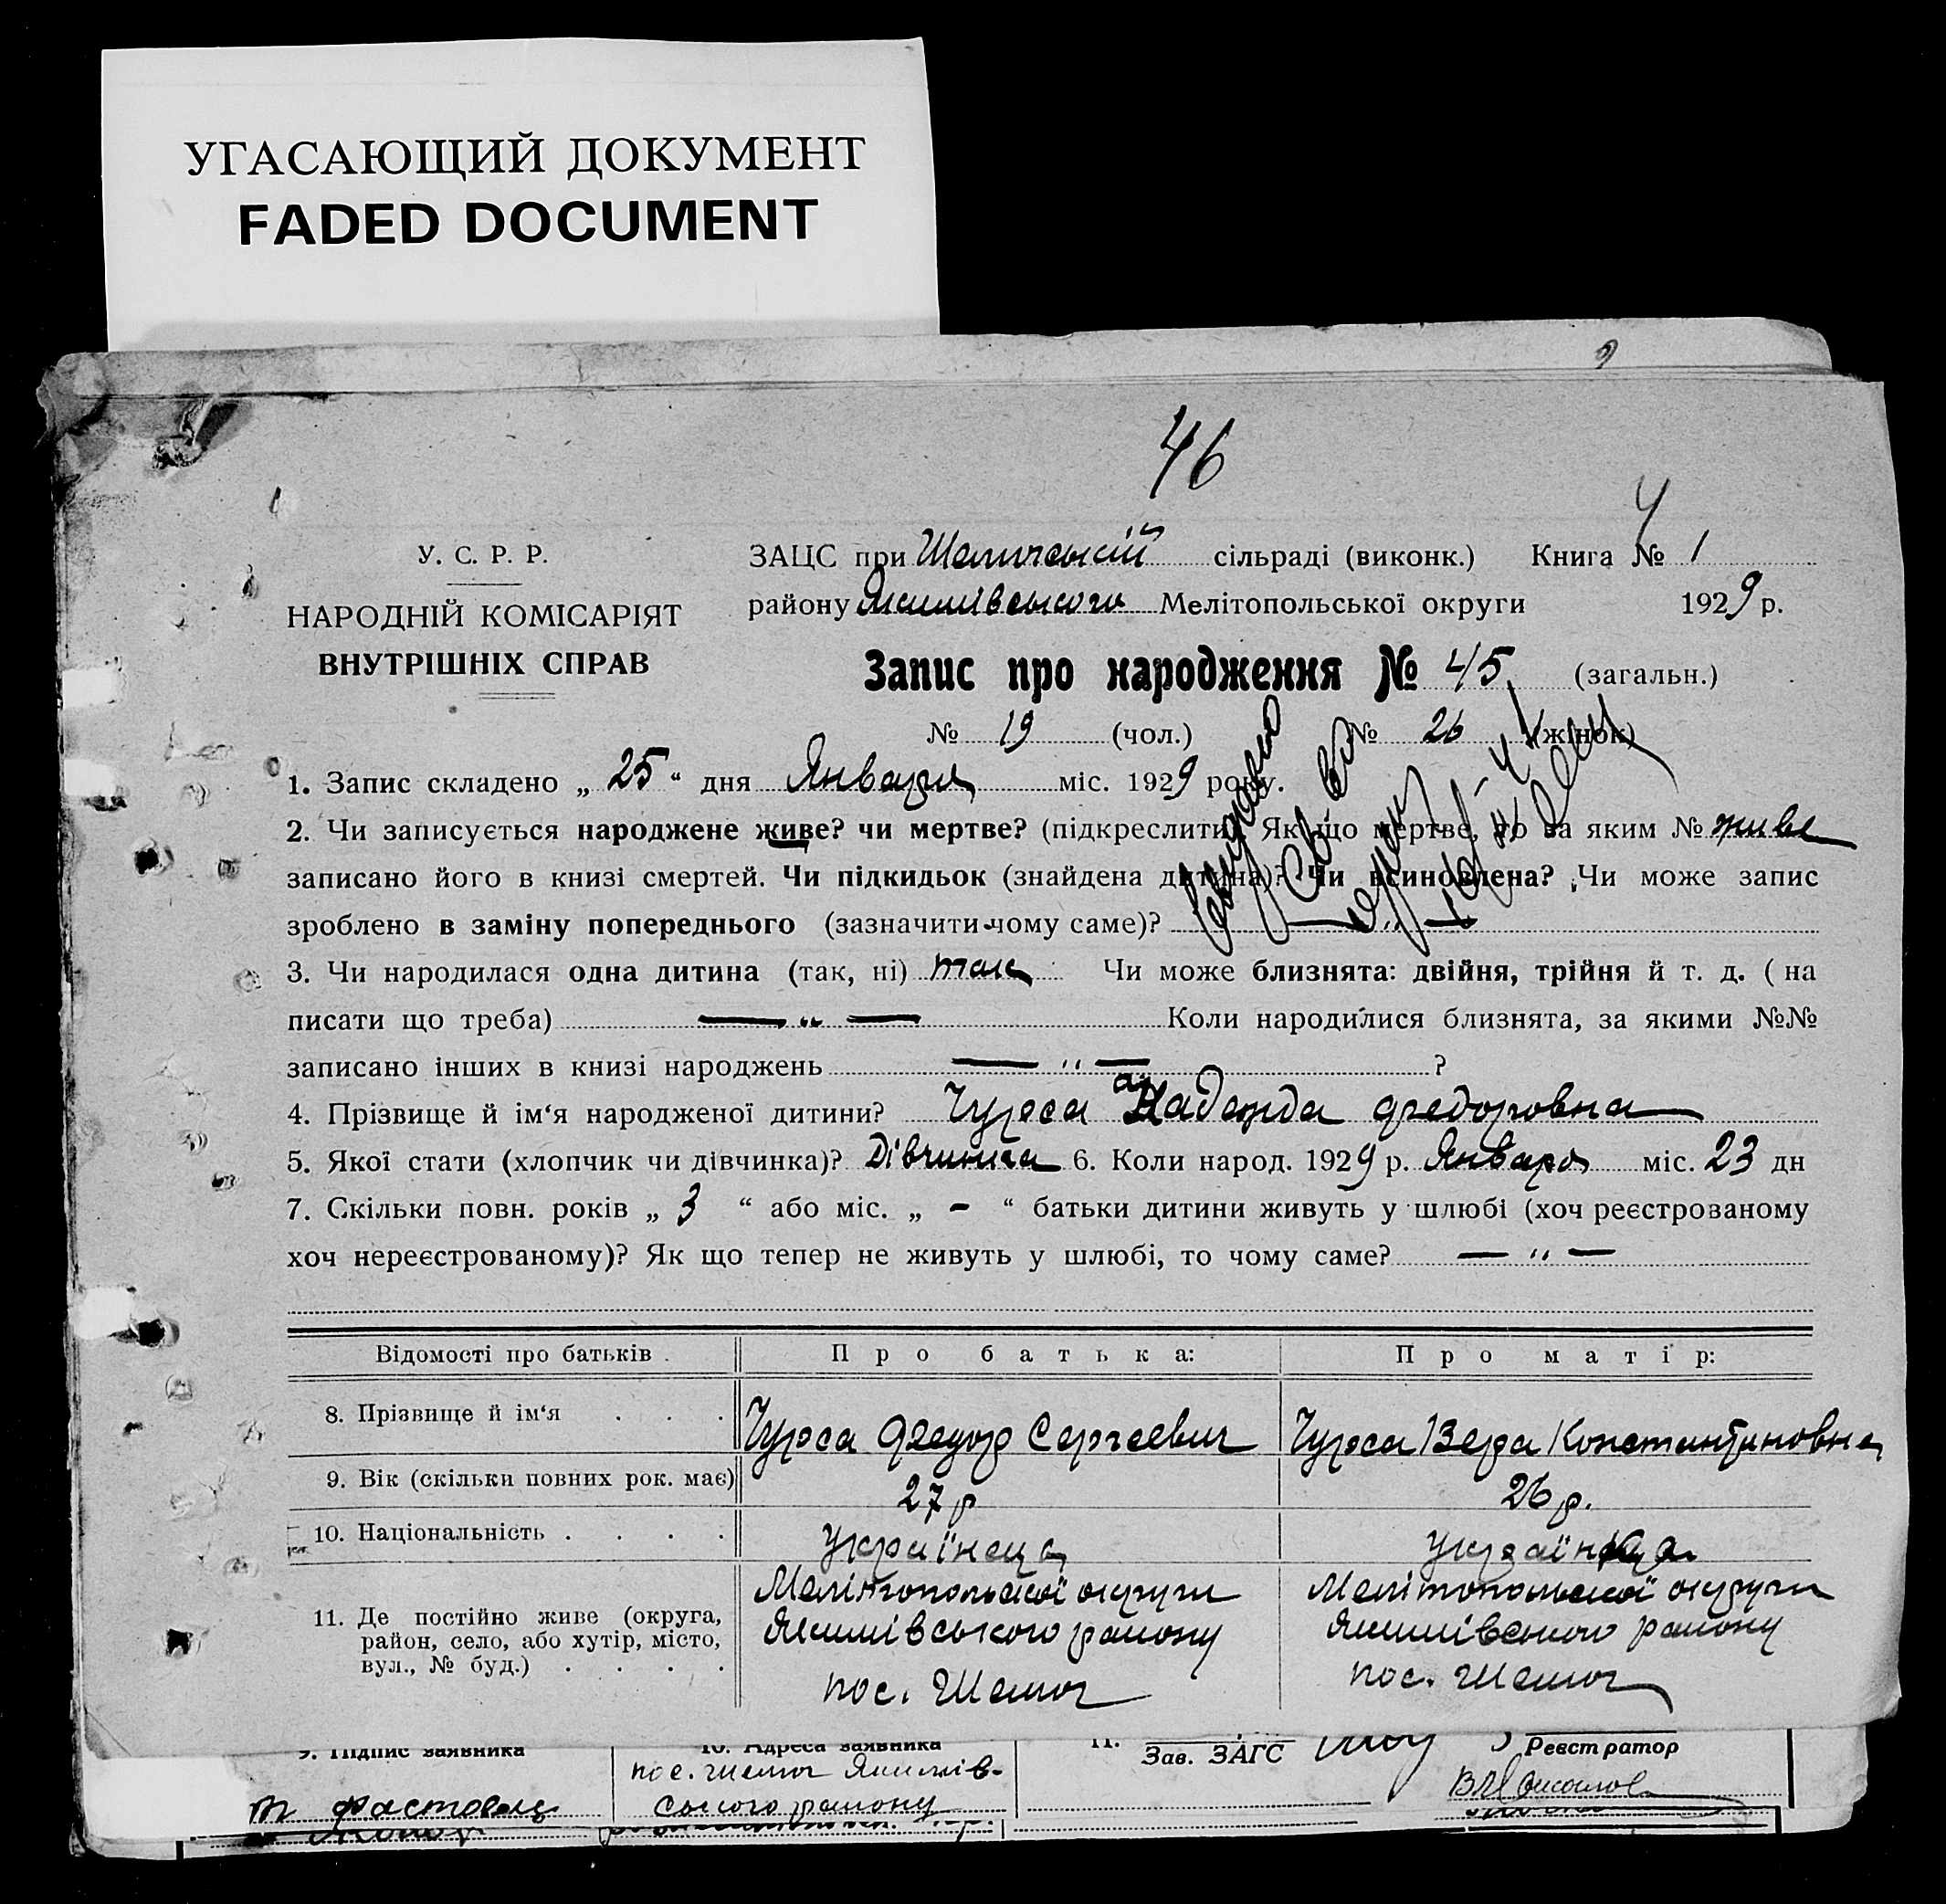 УГАСАЮЩИЙ ДОКУМЕНТ
FADED DOCUMENT
46
У. С. Р. Р.
НАРОДНІЙ КОМІСАРІЯТ
ВНУТРІШНІХ СПРАВ
4
ЗАЦС при сільраді (виконк.) Книга № 1
району Якимівського Мелітопольської округи 1929 р.
Запис про народження № 45 (загальн.)
№ 19 (чол.) № 26 (жінок)
1. Запис складено „ 25 “ дня Января міс. 1929 року.
2. Чи записується народжене живе? чи мертве? (підкреслити) Як що мертве, то за яким № живе
записано його в книзі смертей. Чи підкидьок (знайдена дитина)? Чи всиновлена? Чи може запис
зроблено в заміну попереднього (зазначити чому саме)? — „ —
3. Чи народилася одна дитина (так, ні) так Чи може близнята: двійня, трійня й т. д. ( на
писати що треба) — „ — Коли народилися близнята, за якими №№
записано інших в книзі народжень — „ — ?
4. Прізвище й ім‘я народженої дитини? Чурса Надежда Федоровна
5. Якої стати (хлопчик чи дівчинка)? Дівчинка 6. Коли народ. 1929 р. Января міс. 23 дн
7. Скільки повн. років „ 3 “ або міс. „ - “ батьки дитини живуть у шлюбі (хоч реєстрованому
хоч нереєстрованому)? Як що тепер не живуть у шлюбі, то чому саме? — „ —
Відомості про батьків . Про батька: Про матір:
8. Прізвище й ім‘я . . . Чурса Федор Сергеевич Чурса Вера Константиновна
9. Вік (скільки повних рок. має) 27 р 26 р.
10. Національність . . . . Українец Українка
11. Де постійно живе (округа,
район, село, або хутір, місто,
вул., № буд.) . . . .
Мелітопольської округи
Якимівського району
пос. Шелюг
Мелітопольської округи
Якимівського району
пос. Шелюг
9. Підпис заявника 10. Адреса заявника 11. Зав. ЗАГС Реєстратор
пос. Шелюг Якимів-
ського району
Фастовец